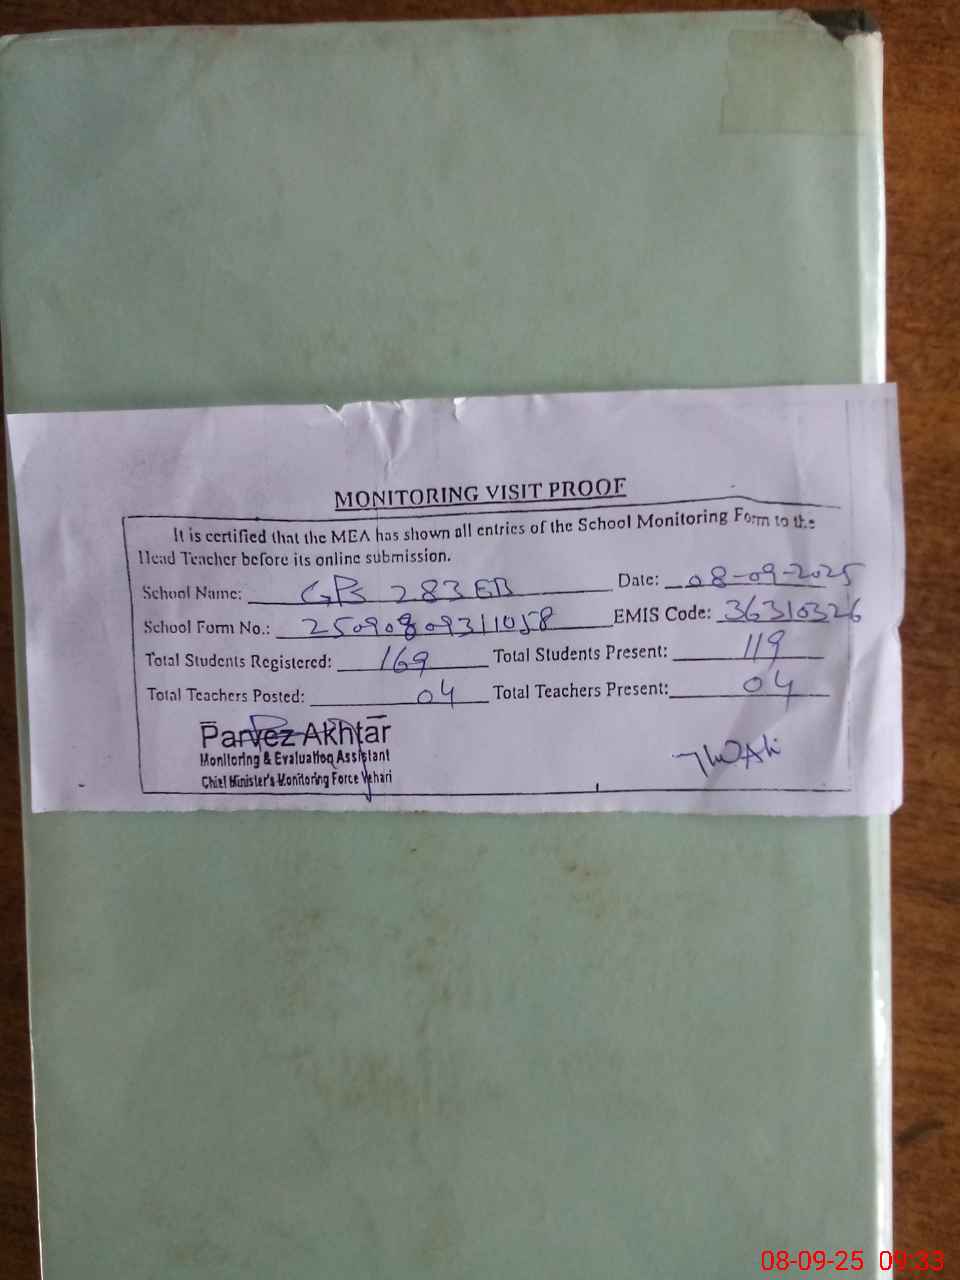 MONITORING VISIT PROOF
It is certified that the MEA has shown all entries of the School Monitoring Form to the
Head Teacher before its online submission.
School Name: GPS 283 EB Date: 08-09-2025
School Form No.: 25090809311058 EMIS Code: 36310326
Total Students Registered: 169 Total Students Present: 119
Total Teachers Posted: 04 Total Teachers Present: 04
Parvez Akhtar
Monitoring & Evaluation Assistant
Chief Minister's Monitoring Force Vehari
08-09-25 09:33